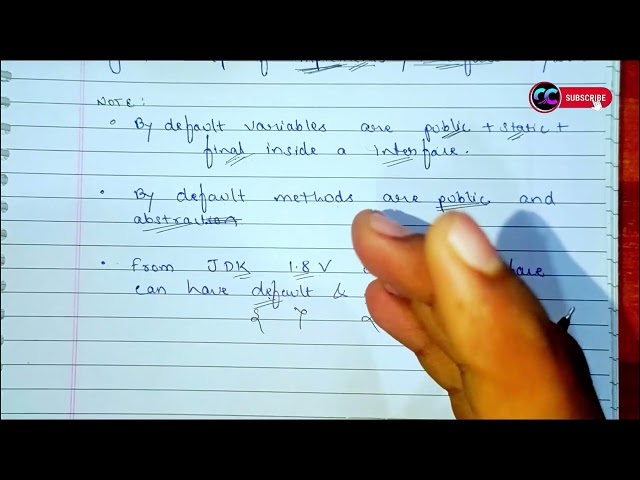 SUBSCRIBE
NOTE:
• By default variables are public + static +
final inside a Interface.
• By default methods are public and
abstraction
• From JDK 1.8 V
can have default &
{ }